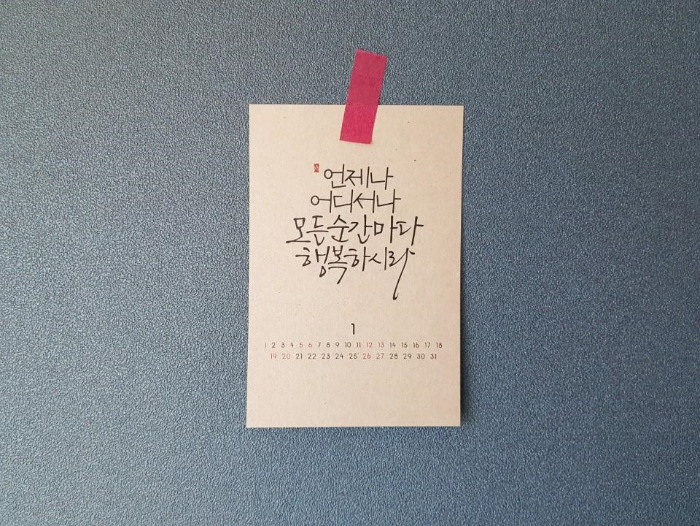 언제나
어디서나
모든 순간마다
행복하시라
1
1 2 3 4 5 6 7 8 9 10 11 12 13 14 15 16 17 18
19 20 21 22 23 24 25 26 27 28 29 30 31